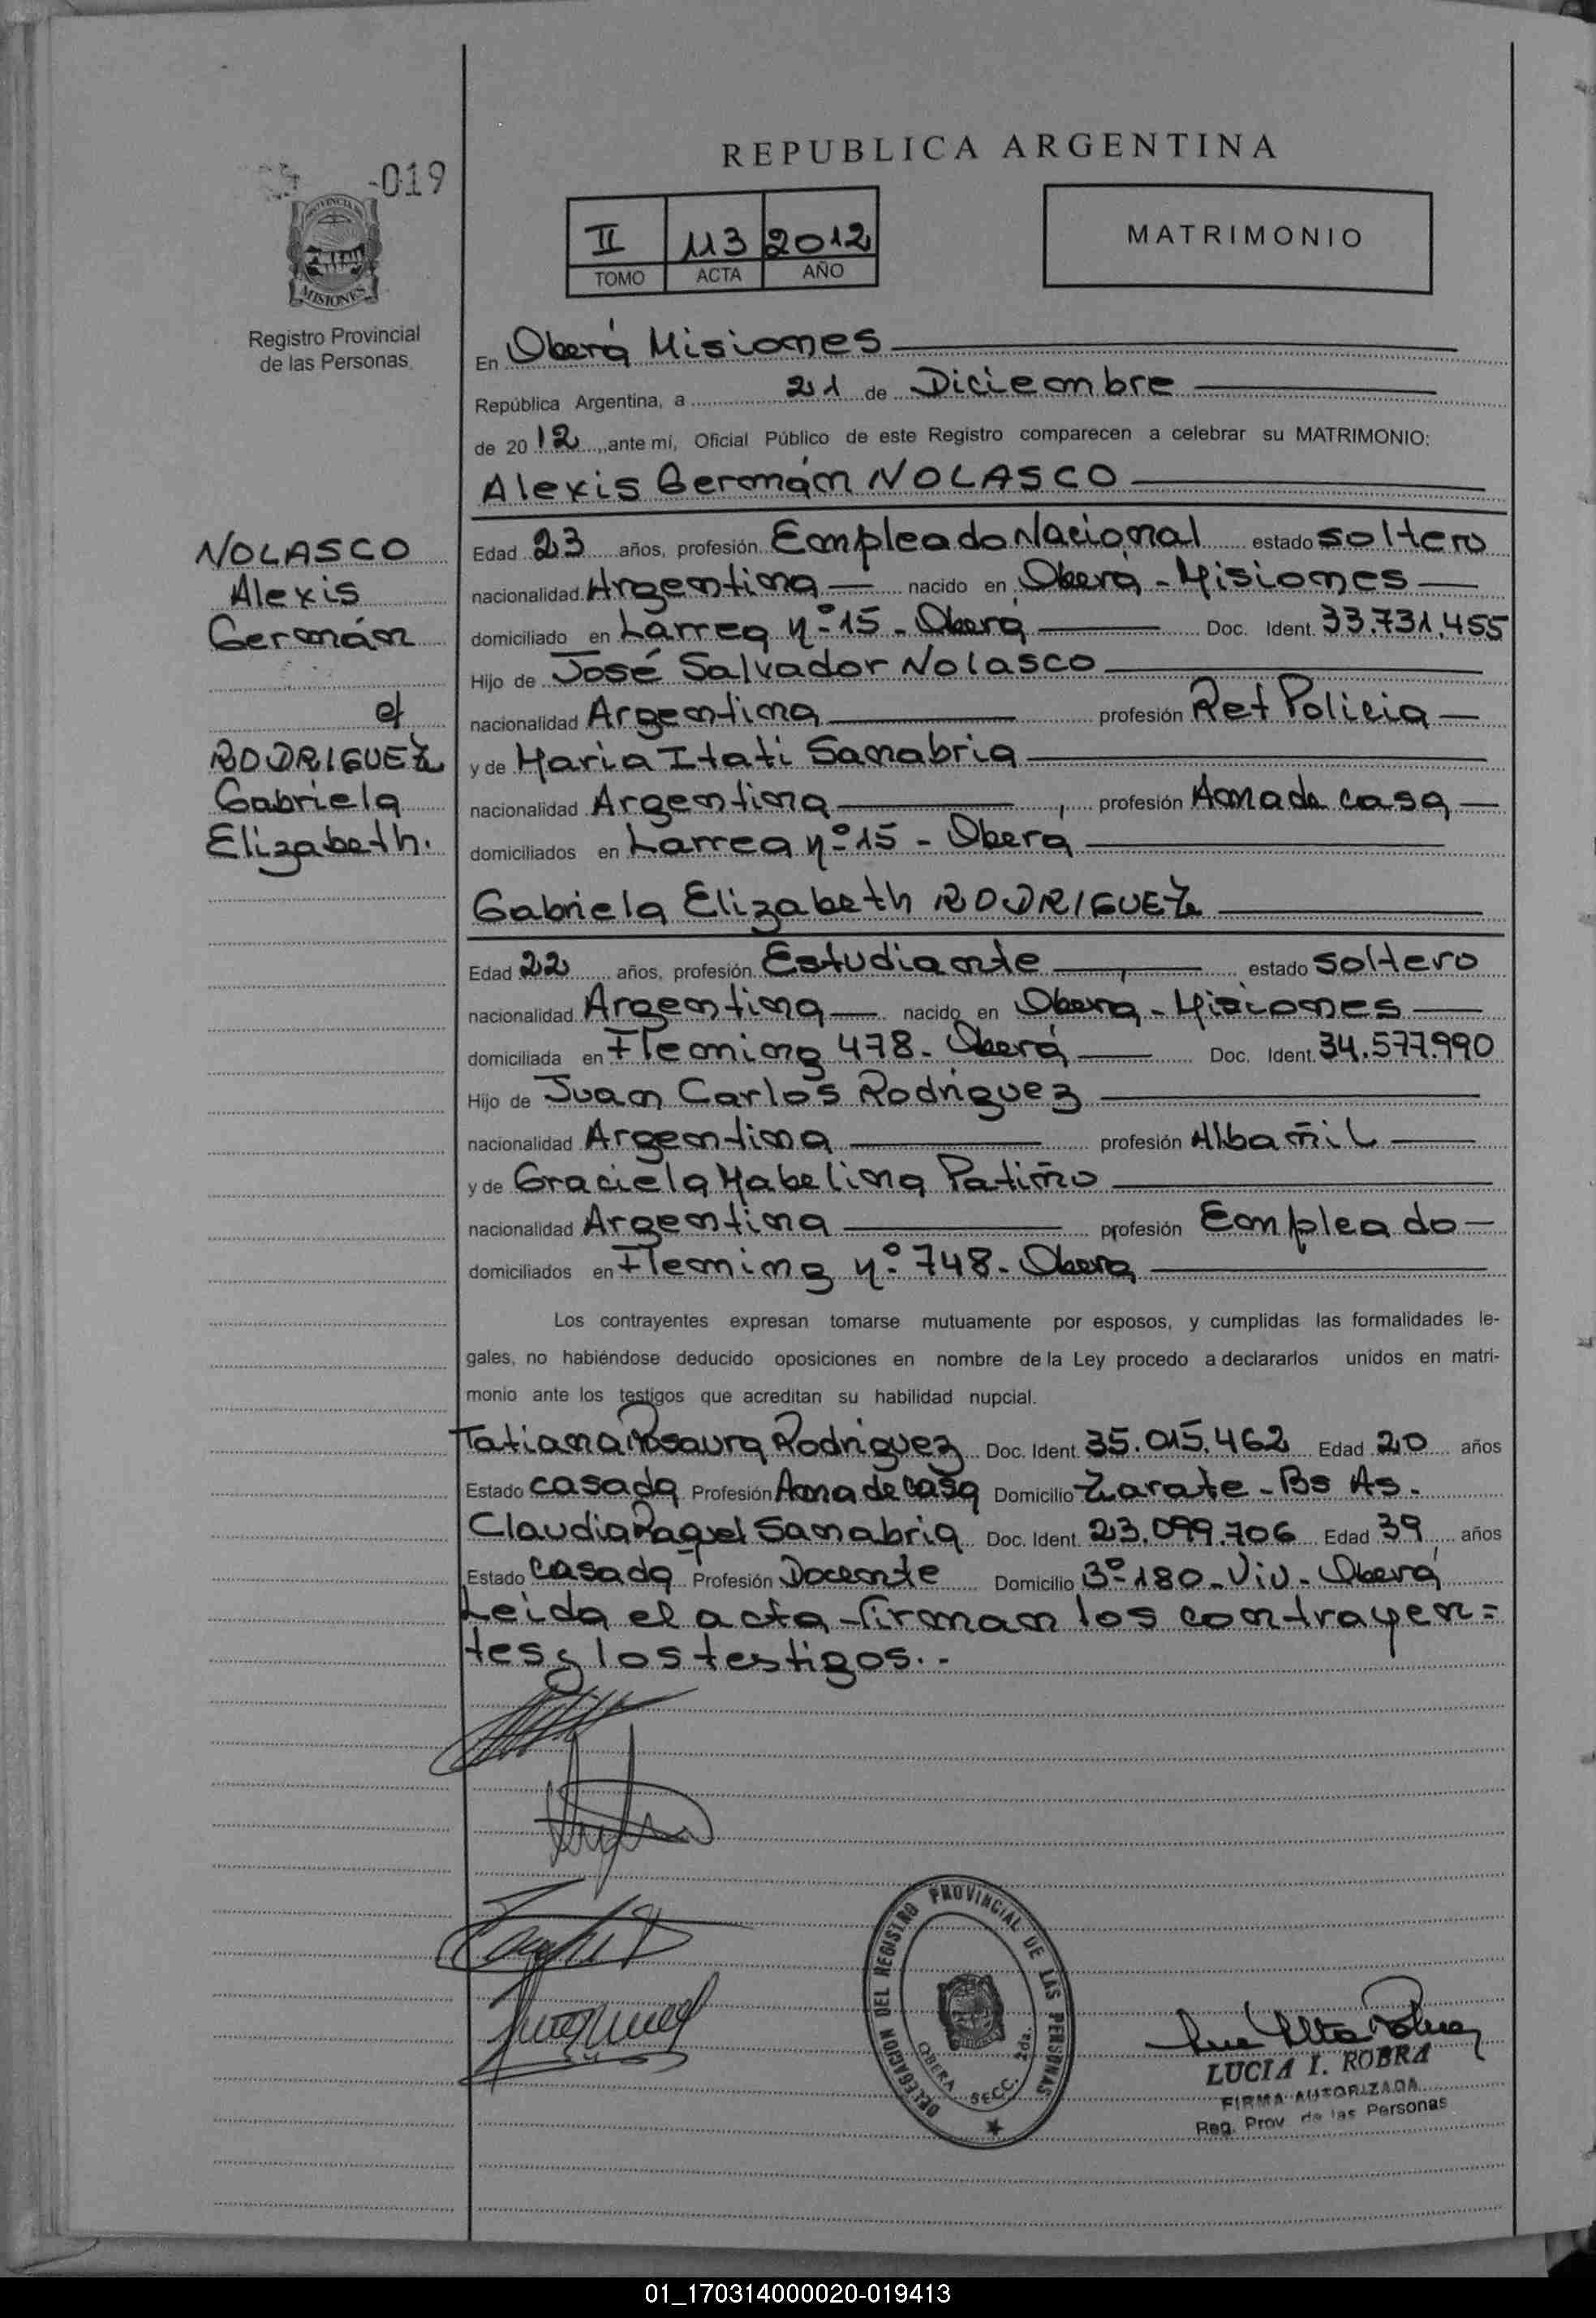 REPUBLICA ARGENTINA
-019
PROVINCIA DE
MISIONES
Registro Provincial
de las Personas
II 113 2012
TOMO ACTA AÑO
MATRIMONIO
En Oberá Misiones
República Argentina, a 21 de Diciembre
de 2012, ante mí, Oficial Público de este Registro comparecen a celebrar su MATRIMONIO:
Alexis Germán NOLASCO
NOLASCO
Alexis
Germán
et
RODRIGUEZ
Gabriela
Elizabeth.
Edad 23 años, profesión Empleado Nacional estado soltero
nacionalidad Argentina nacido en Oberá - Misiones
domiciliado en Larrea nº 15 - Oberá Doc. Ident. 33.731.455
Hijo de José Salvador Nolasco
nacionalidad Argentina profesión Ret Policia
y de Maria Itati Sanabria
nacionalidad Argentina profesión Ama de casa
domiciliados en Larrea nº 15 - Obera
Gabriela Elizabeth RODRIGUEZ
Edad 22 años, profesión Estudiante estado soltero
nacionalidad Argentina nacido en Obera - Misiones
domiciliada en Fleming 478 - Oberá Doc. Ident. 34.577.990
Hijo de Juan Carlos Rodriguez
nacionalidad Argentina profesión Albañil
y de Graciela Mabelina Patiño
nacionalidad Argentina profesión Empleado
domiciliados en Fleming nº 748 - Obera
Los contrayentes expresan tomarse mutuamente por esposos, y cumplidas las formalidades le-
gales, no habiéndose deducido oposiciones en nombre de la Ley procedo a declararlos unidos en matri-
monio ante los testigos que acreditan su habilidad nupcial.
Tatiana Rosaura Rodriguez Doc. Ident. 35.015.462 Edad 20 años
Estado casada Profesión Ama de casa Domicilio Zarate - Bs As.
Claudia Raquel Sanabria Doc. Ident. 23.099.706 Edad 39 años
Estado casada Profesión Docente Domicilio Bº 180 - Viv - Oberá
Leida el acta firman los contrayen=
tes y los testigos.-
DELEGACION DEL REGISTRO PROVINCIAL DE LAS PERSONAS
OBERA SECC. 2da.
LUCIA I. ROBRA
FIRMA AUTORIZADA
Reg. Prov. de las Personas
01_170314000020-019413